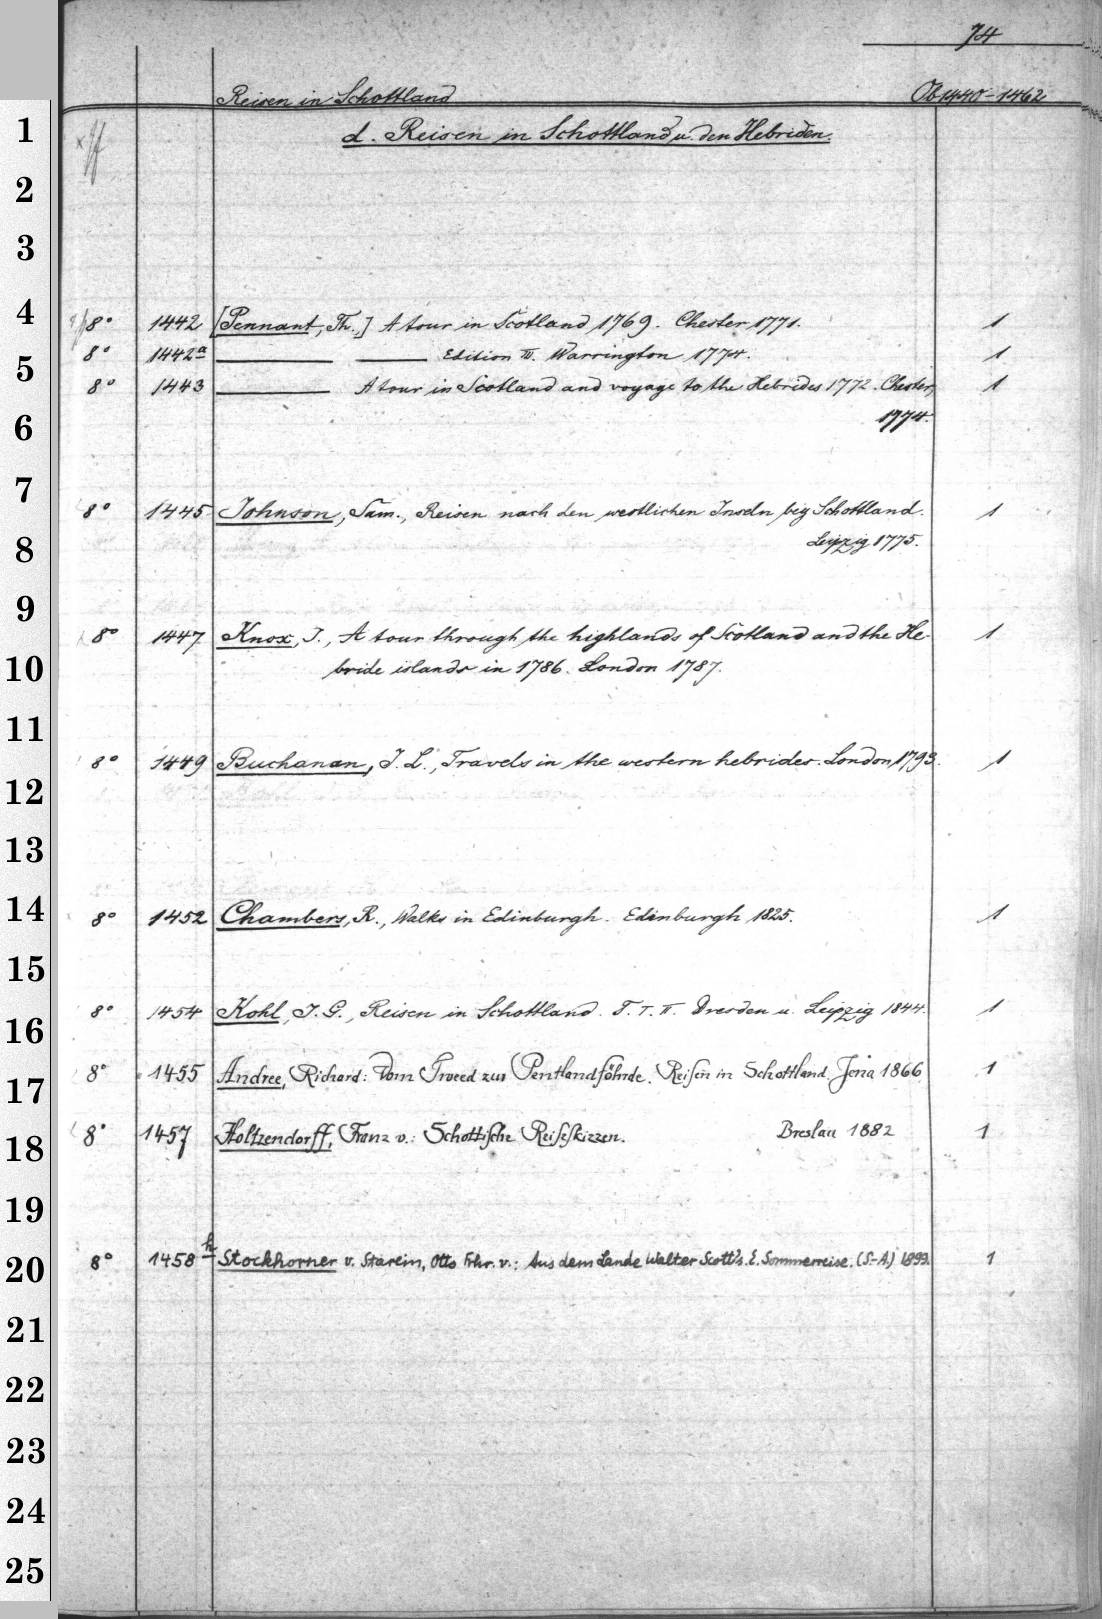 74
Reisen in Schottland Ob 1440-1462
1 d. Reisen in Schottland u. den Hebriden.
2
3
4 8° 1442 [Pennant, Th.] A tour in Scotland 1769. Chester 1771. 1
5 8° 1442a Edition III. Warrington 1774. 1
8° 1443 A tour in Scotland and voyage to the Hebrides 1772. Chester, 1
6 1774.
7 8° 1445 Johnson, Sam., Reisen nach den westlichen Inseln bey Schottland. 1
8 Leipzig 1775.
9 8° 1447 Knox, J., A tour through the highlands of Scotland and the He- 1
10 bride islands in 1786. London 1787.
11 8° 1449 Buchanan, J. L., Travels in the western hebrides. London 1793. 1
12
13
14 8° 1452 Chambers, R., Walks in Edinburgh. Edinburgh 1825. 1
15
16 8° 1454 Kohl, J. G., Reisen in Schottland. T. I. II. Dresden u. Leipzig 1844. 1
17 8° 1455 Andree, Richard: Vom Tweed zur Pentlandföhrde. Reisen in Schottland. Jena 1866 1
18 8° 1457 Holtzendorff, Franz v.: Schottische Reiseskizzen. Breslau 1882 1
19
20 8° 1458h Stockhorner v. Starein, Otto Frhr. v.: Aus dem Lande Walter Scott's. E. Sommerreise. (S.-A.) 1899. 1
21
22
23
24
25